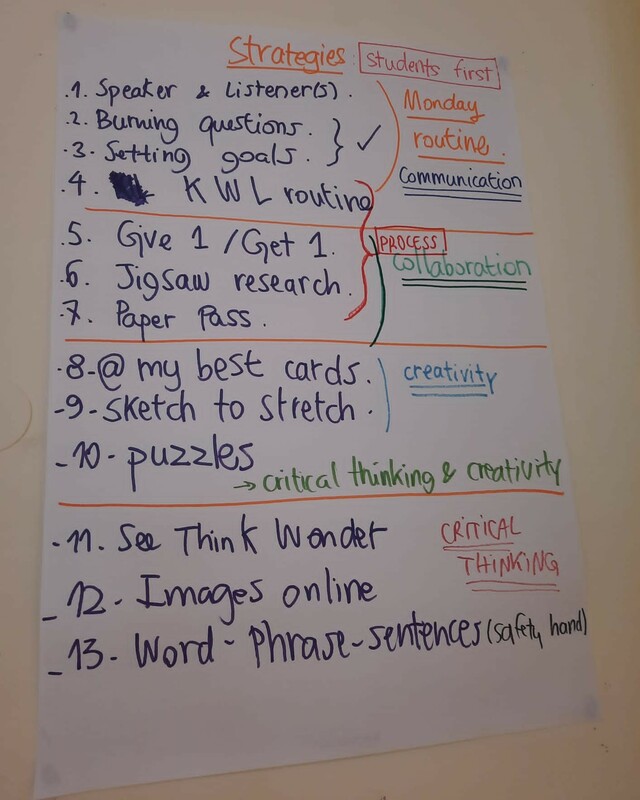 Strategies students first
.1. Speaker & Listener(s).
.2. Burning questions.
.3. Setting goals.
Monday
routine.
Communication
.4. KWL routine
.5. Give 1 / Get 1.
.6. Jigsaw research.
.7. Paper Pass.
PROCESS
collaboration
.8-@ my best cards.
-9-sketch to stretch.
creativity
-10-puzzles
→ critical thinking & creativity
-11. See Think Wonder
CRITICAL
THINKING
-12-Images online
-13-Word-phrase-sentences (safety hand)